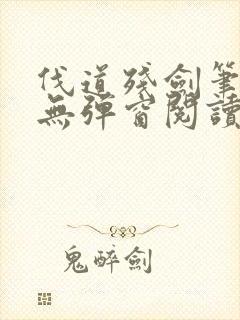 伐道殘劍筆
無彈窗閱讀
鬼醉劍